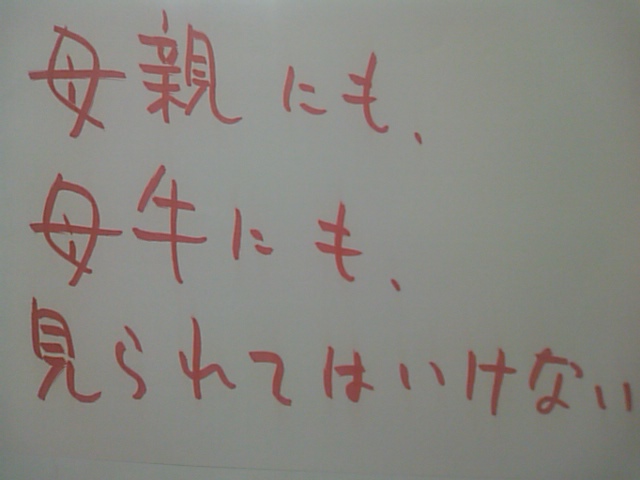 母親にも、
母牛にも、
見られてはいけない